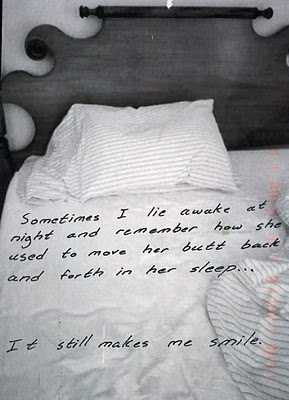 Sometimes I lie awake at
night and remember how she
used to move her butt back
and forth in her sleep...
It still makes me smile.